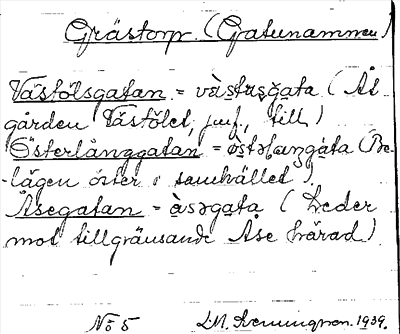 Grästorp (Gatunammen)
Västölsgatan = vàstɯsgata (Åt
gården Västölet, jmf, till)
Österlånggatan = östəlaŋgàta (Be-
-lägen öster i samhället)
Åsegatan = àsəgata ( Leder
mot tillgränsande Åse härad)
No 5 1939.